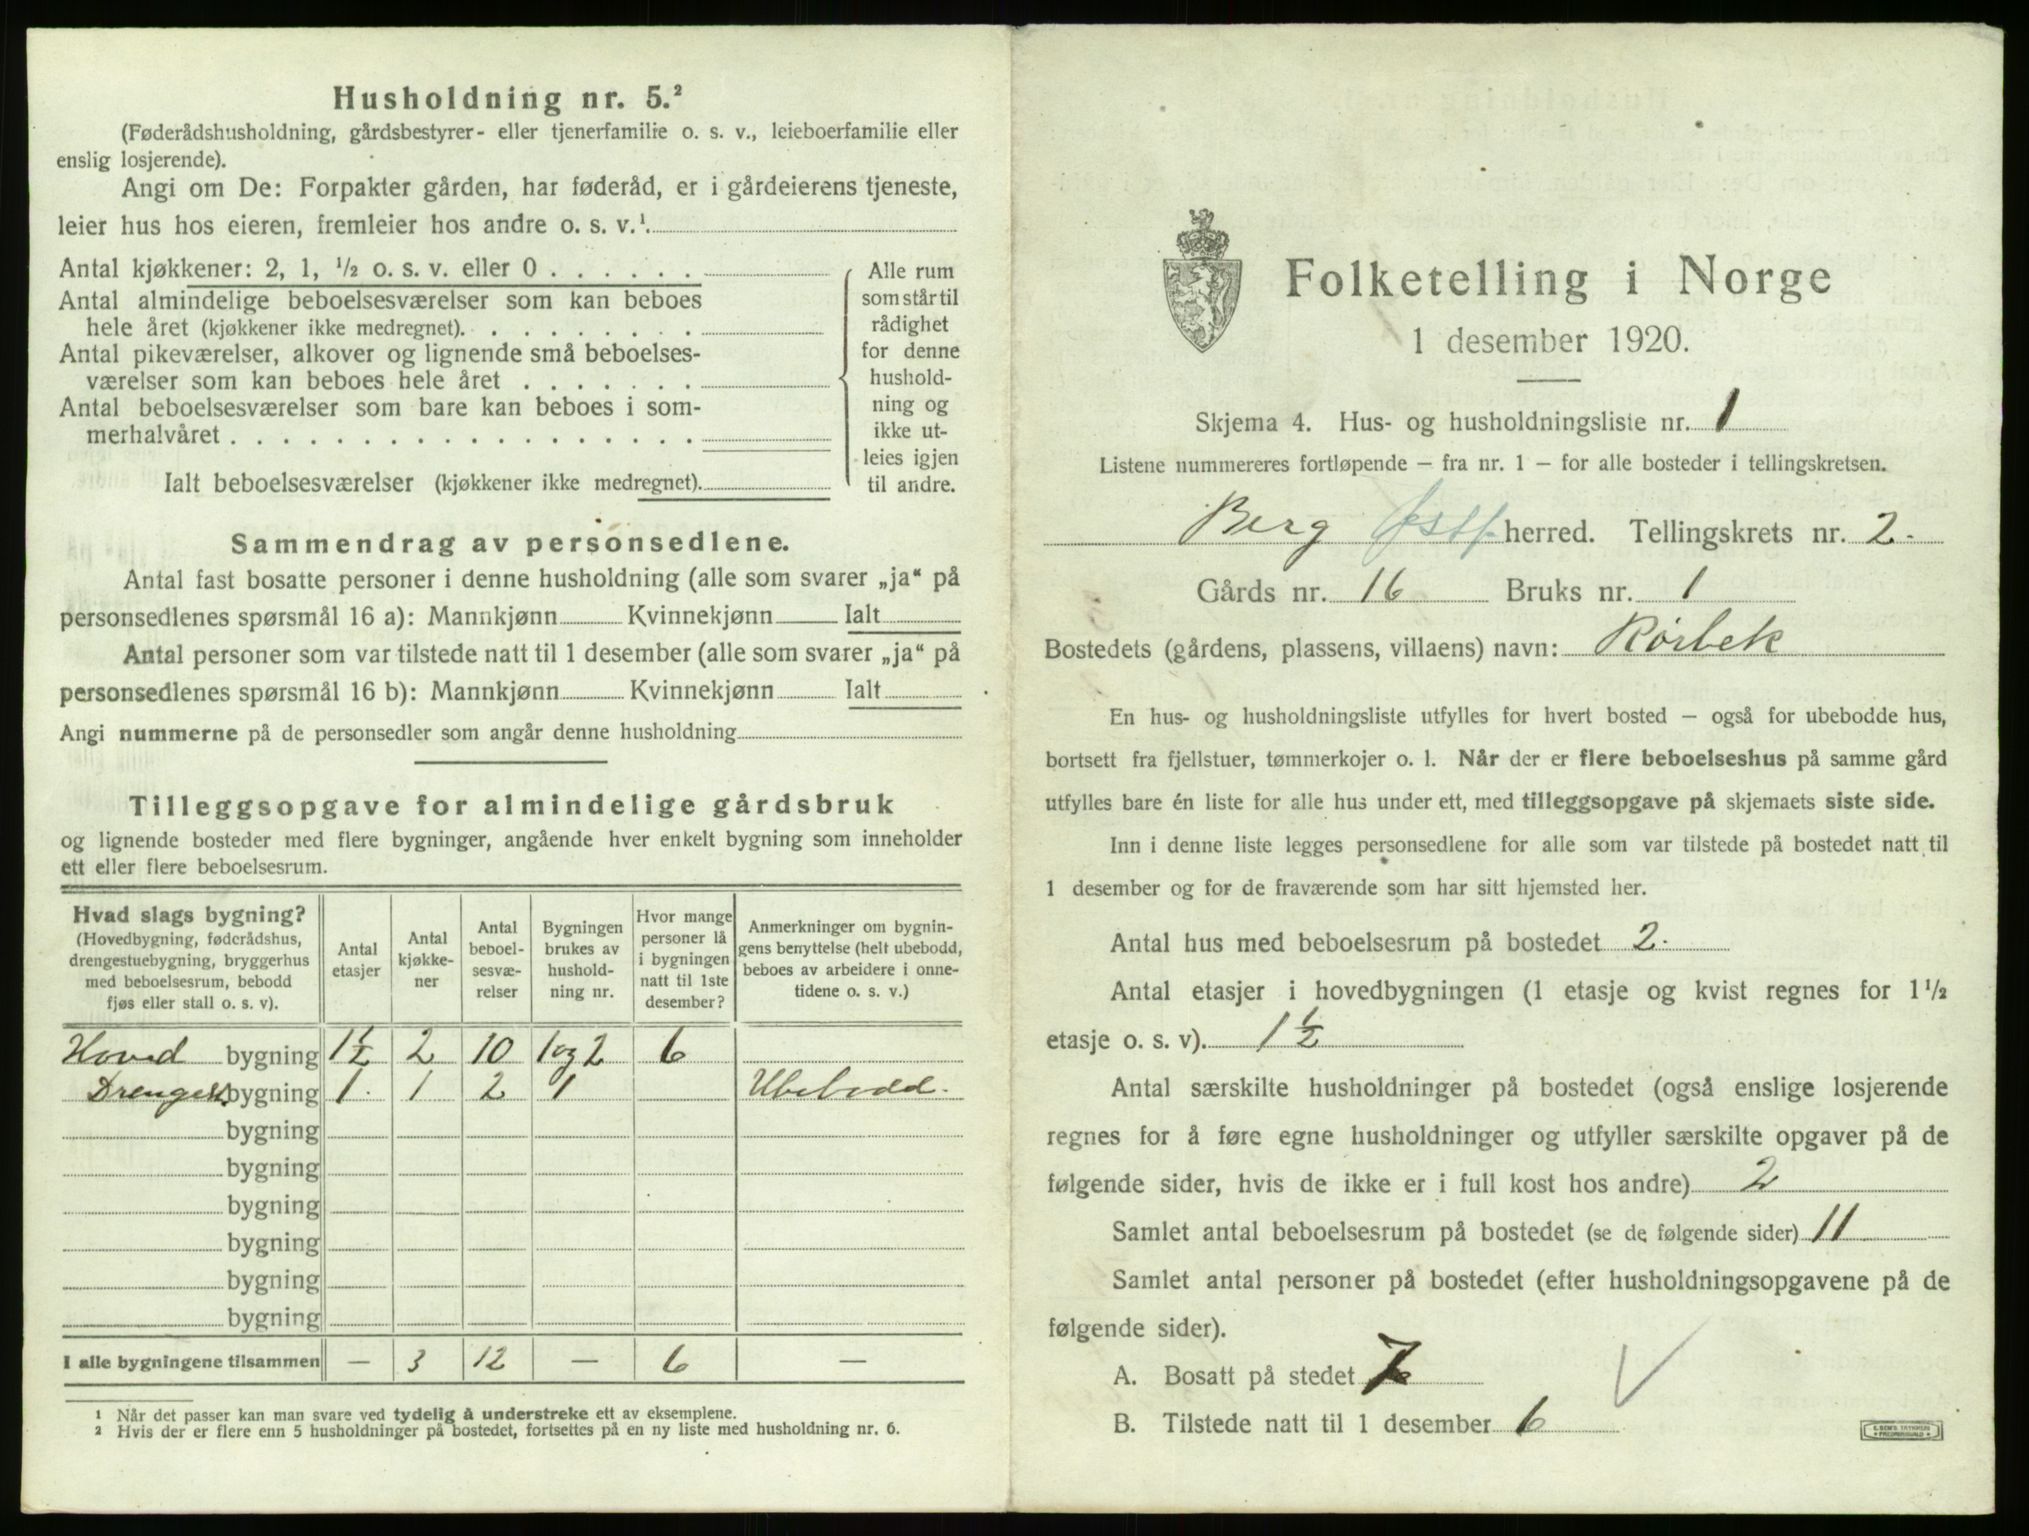 Husholdning nr. 5.²
(Føderådshusholdning, gårdsbestyrer- eller tjenerfamilie o. s. v., leieboerfamilie eller
enslig losjerende).
Angi om De: Forpakter gården, har føderåd, er i gårdeierens tjeneste,
leier hus hos eieren, fremleier hos andre o. s. v.¹
Antal kjøkkener: 2, 1, ½ o. s. v. eller 0 . . . . . .
Antal almindelige beboelsesværelser som kan beboes
hele året (kjøkkener ikke medregnet). . . . . . . . .
Antal pikeværelser, alkover og lignende små beboelses-
værelser som kan beboes hele året . . . . . . .
Antal beboelsesværelser som bare kan beboes i som-
merhalvåret . . . . . . . . . . . . . . . . . .
Ialt beboelsesværelser (kjøkkener ikke medregnet).
Alle rum
som står til
rådighet
for denne
hushold-
ning og
ikke ut-
leies igjen
til andre.
Sammendrag av personsedlene.
Antal fast bosatte personer i denne husholdning (alle som svarer „ja“ på
personsedlenes spørsmål 16 a): Mannkjønn Kvinnekjønn Ialt
Antal personer som var tilstede natt til 1 desember (alle som svarer „ja“ på
personsedlenes spørsmål 16 b): Mannkjønn Kvinnekjønn Ialt
Angi nummerne på de personsedler som angår denne husholdning
Tilleggsopgave for almindelige gårdsbruk
og lignende bosteder med flere bygninger, angående hver enkelt bygning som inneholder
ett eller flere beboelsesrum.
Hvad slags bygning?
(Hovedbygning, føderådshus,
drengestuebygning, bryggerhus
med beboelsesrum, bebodd
fjøs eller stall o. s. v).
Antal
etasjer
Antal
kjøkke-
ner
Antal
beboel-
sesvæ-
relser
Bygningen
brukes av
hushold-
ning nr.
Hvor mange
personer lå
i bygningen
natt til 1ste
desember?
Anmerkninger om bygnin-
gens benyttelse (helt ubebodd,
beboes av arbeidere i onne-
tidene o. s. v.)
Hoved bygning 1½ 2 10 1 og 2 6
Drengest. bygning 1. 1 2 1 Ubebodd.
bygning
bygning
bygning
bygning
bygning
bygning
I alle bygningene tilsammen — 3 12 — 6 —
¹ Når det passer kan man svare ved tydelig å understreke ett av eksemplene.
² Hvis der er flere enn 5 husholdninger på bostedet, fortsettes på en ny liste med husholdning nr. 6.
Folketelling i Norge
1 desember 1920.
Skjema 4. Hus- og husholdningsliste nr. 1
Listene nummereres fortløpende – fra nr. 1 – for alle bosteder i tellingskretsen.
Berg herred. Tellingskrets nr. 2.
Gårds nr. 16 Bruks nr. 1
Bostedets (gårdens, plassens, villaens) navn: Rörbek
En hus- og husholdningsliste utfylles for hvert bosted – også for ubebodde hus,
bortsett fra fjellstuer, tømmerkojer o. l. Når der er flere beboelseshus på samme gård
utfylles bare én liste for alle hus under ett, med tilleggsopgave på skjemaets siste side.
Inn i denne liste legges personsedlene for alle som var tilstede på bostedet natt til
1 desember og for de fraværende som har sitt hjemsted her.
Antal hus med beboelsesrum på bostedet 2.
Antal etasjer i hovedbygningen (1 etasje og kvist regnes for 1½
etasje o. s. v). 1½
Antal særskilte husholdninger på bostedet (også enslige losjerende
regnes for å føre egne husholdninger og utfyller særskilte opgaver på de
følgende sider, hvis de ikke er i full kost hos andre) 2
Samlet antal beboelsesrum på bostedet (se de følgende sider) 11
Samlet antal personer på bostedet (efter husholdningsopgavene på de
følgende sider).
A. Bosatt på stedet 7
B. Tilstede natt til 1 desember 6